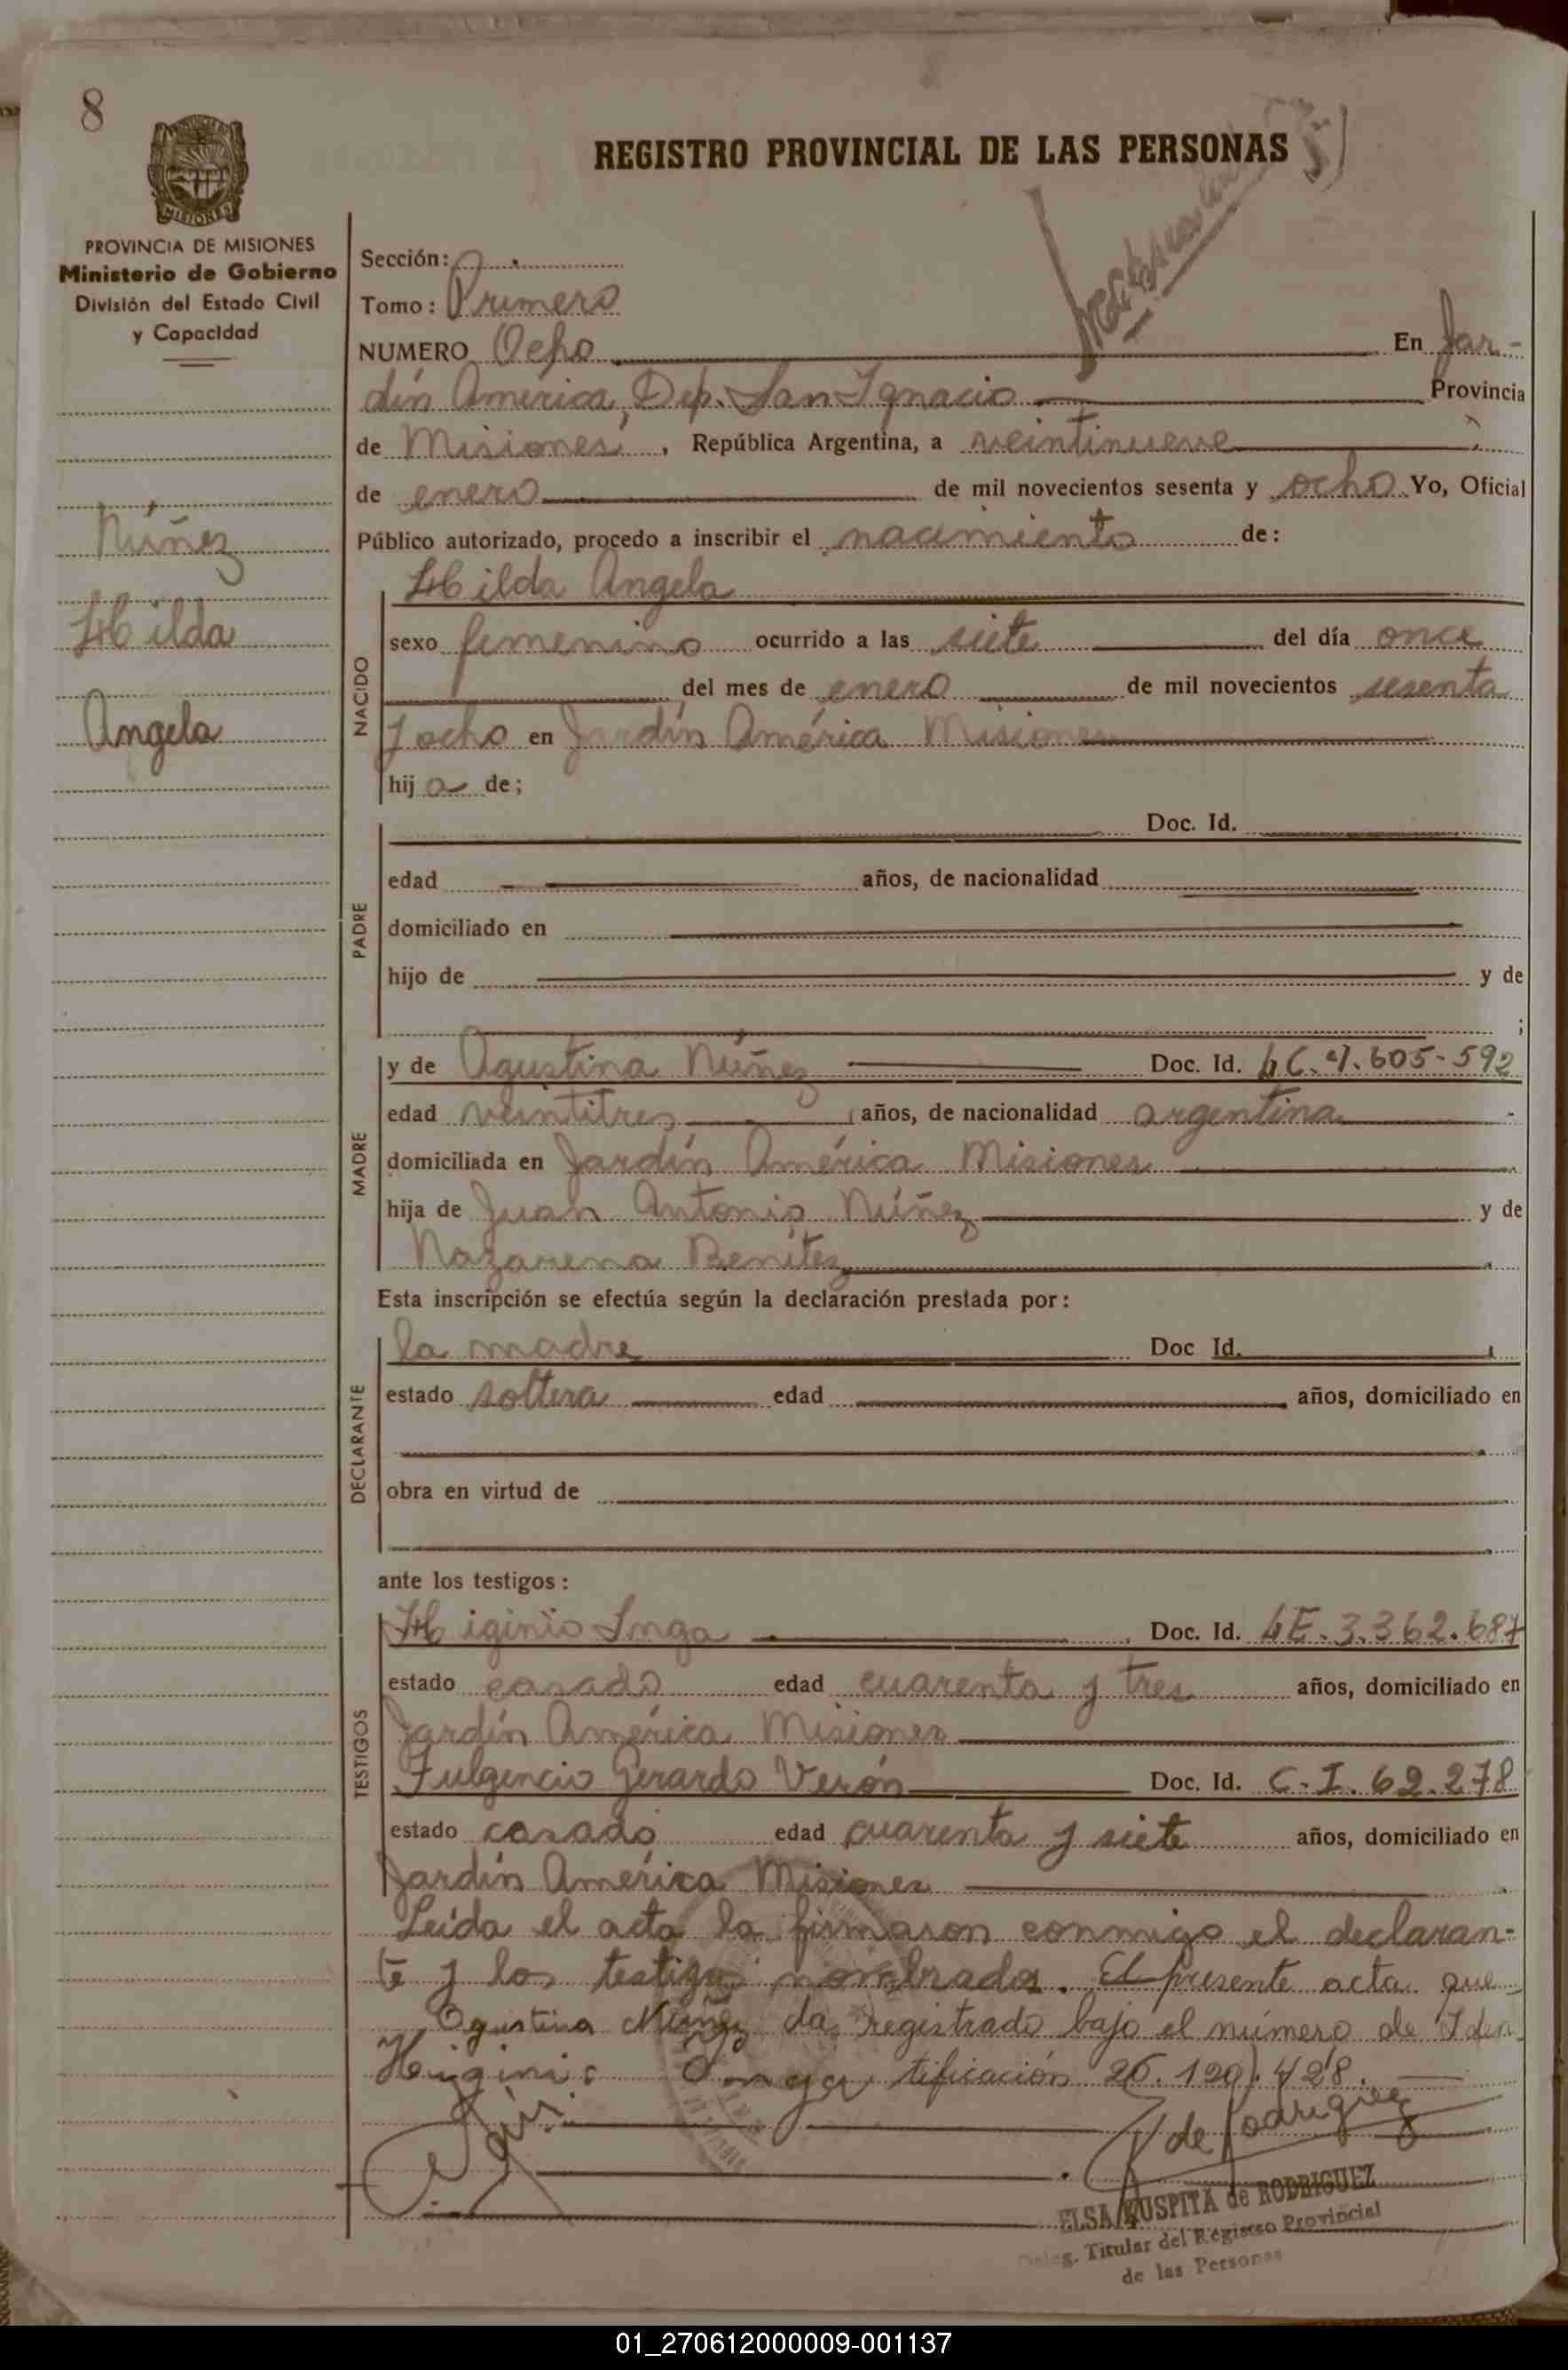 8
REGISTRO PROVINCIAL DE LAS PERSONAS
MISIONES
PROVINCIA DE MISIONES
Ministerio de Gobierno
División del Estado Civil
y Capacidad
Sección:
Tomo: Primero
NUMERO Ocho En Jar-
dín América, Dep. San Ignacio Provincia
de Misiones, República Argentina, a veintinueve
de enero de mil novecientos sesenta y ocho Yo, Oficial
Público autorizado, procedo a inscribir el nacimiento de:
Núñez
Hilda
Angela
Hilda Angela
NACIDO
sexo femenino ocurrido a las siete del día once
del mes de enero de mil novecientos sesenta
y ocho en Jardín América Misiones
hija de;
PADRE
Doc. Id.
edad años, de nacionalidad
domiciliado en
hijo de y de
;
MADRE
y de Agustina Núñez Doc. Id. LC. 605-592
edad veintitres años, de nacionalidad argentina
domiciliada en Jardín América Misiones
hija de Juan Antonio Núñez y de
Nazarena Benítez
Esta inscripción se efectúa según la declaración prestada por:
DECLARANTE
la madre Doc Id.
estado soltera edad años, domiciliado en
obra en virtud de
ante los testigos:
TESTIGOS
Higinio Inga Doc. Id. LE. 3.362.687
estado casado edad cuarenta y tres años, domiciliado en
Jardín América Misiones
Fulgencio Gerardo Verón Doc. Id. C.I. 62.278
estado casado edad cuarenta y siete años, domiciliado en
Jardín América Misiones
Leída el acta la firmaron conmigo el declaran-
te y los testigos nombrados. El presente acta que-
Agustina Núñez da registrado bajo el número de Iden
Higinio tificación 26.120.428.
de Rodriguez
ELSA KUSPITA de RODRIGUEZ
Deleg. Titular del Registro Provincial
de las Personas
01_270612000009-001137